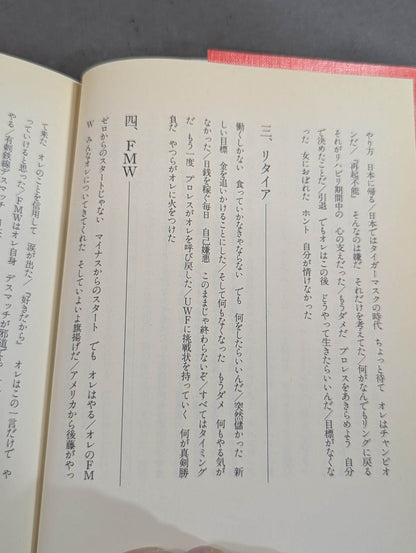 やり方 日本に帰る/日本ではタイガーマスクの時代 ちょっと待て オレはチャンピオ
ンだ/「再起不能」 そんなのは嫌だ それだけを考えてた/何がなんでもリングに戻る
それがリハビリ期間中の 心の支えだった/もうダメだ プロレスをあきらめよう 自分
で決めたことだ/引退 でもオレはこの後 どうやって生きたらいいんだ/目標がなくな
った 女におぼれた ホント 自分が情けなかった
三、リタイア
働くしかない 食っていかなきゃならない でも 何をしたらいいんだ/突然儲かった 新
しい目標 金を追いかけることにした/そして何もなくなった もうダメ 何もやる気が
なかった/日銭を稼ぐ毎日 自己嫌悪 このままじゃ終わらないぞ/すべてはタイミング
だ もう一度 プロレスがオレを呼び戻した/UWFに挑戦状を持っていく 何が真剣勝
負だ やつらがオレに火をつけた
四、FMW
ゼロからのスタートじゃない マイナスからのスタート でも オレはやる/オレのFM
W みんなオレについてきてくれた そしていよいよ旗揚げだ/アメリカから後藤がやっ
て来た オレのことを信用して 涙が出た/「好きだから」 オレはこの一言だけで や
っていけると思った/FMWはオレ自身 デスマッチが邪道
やる/有刺鉄線デスマッチ